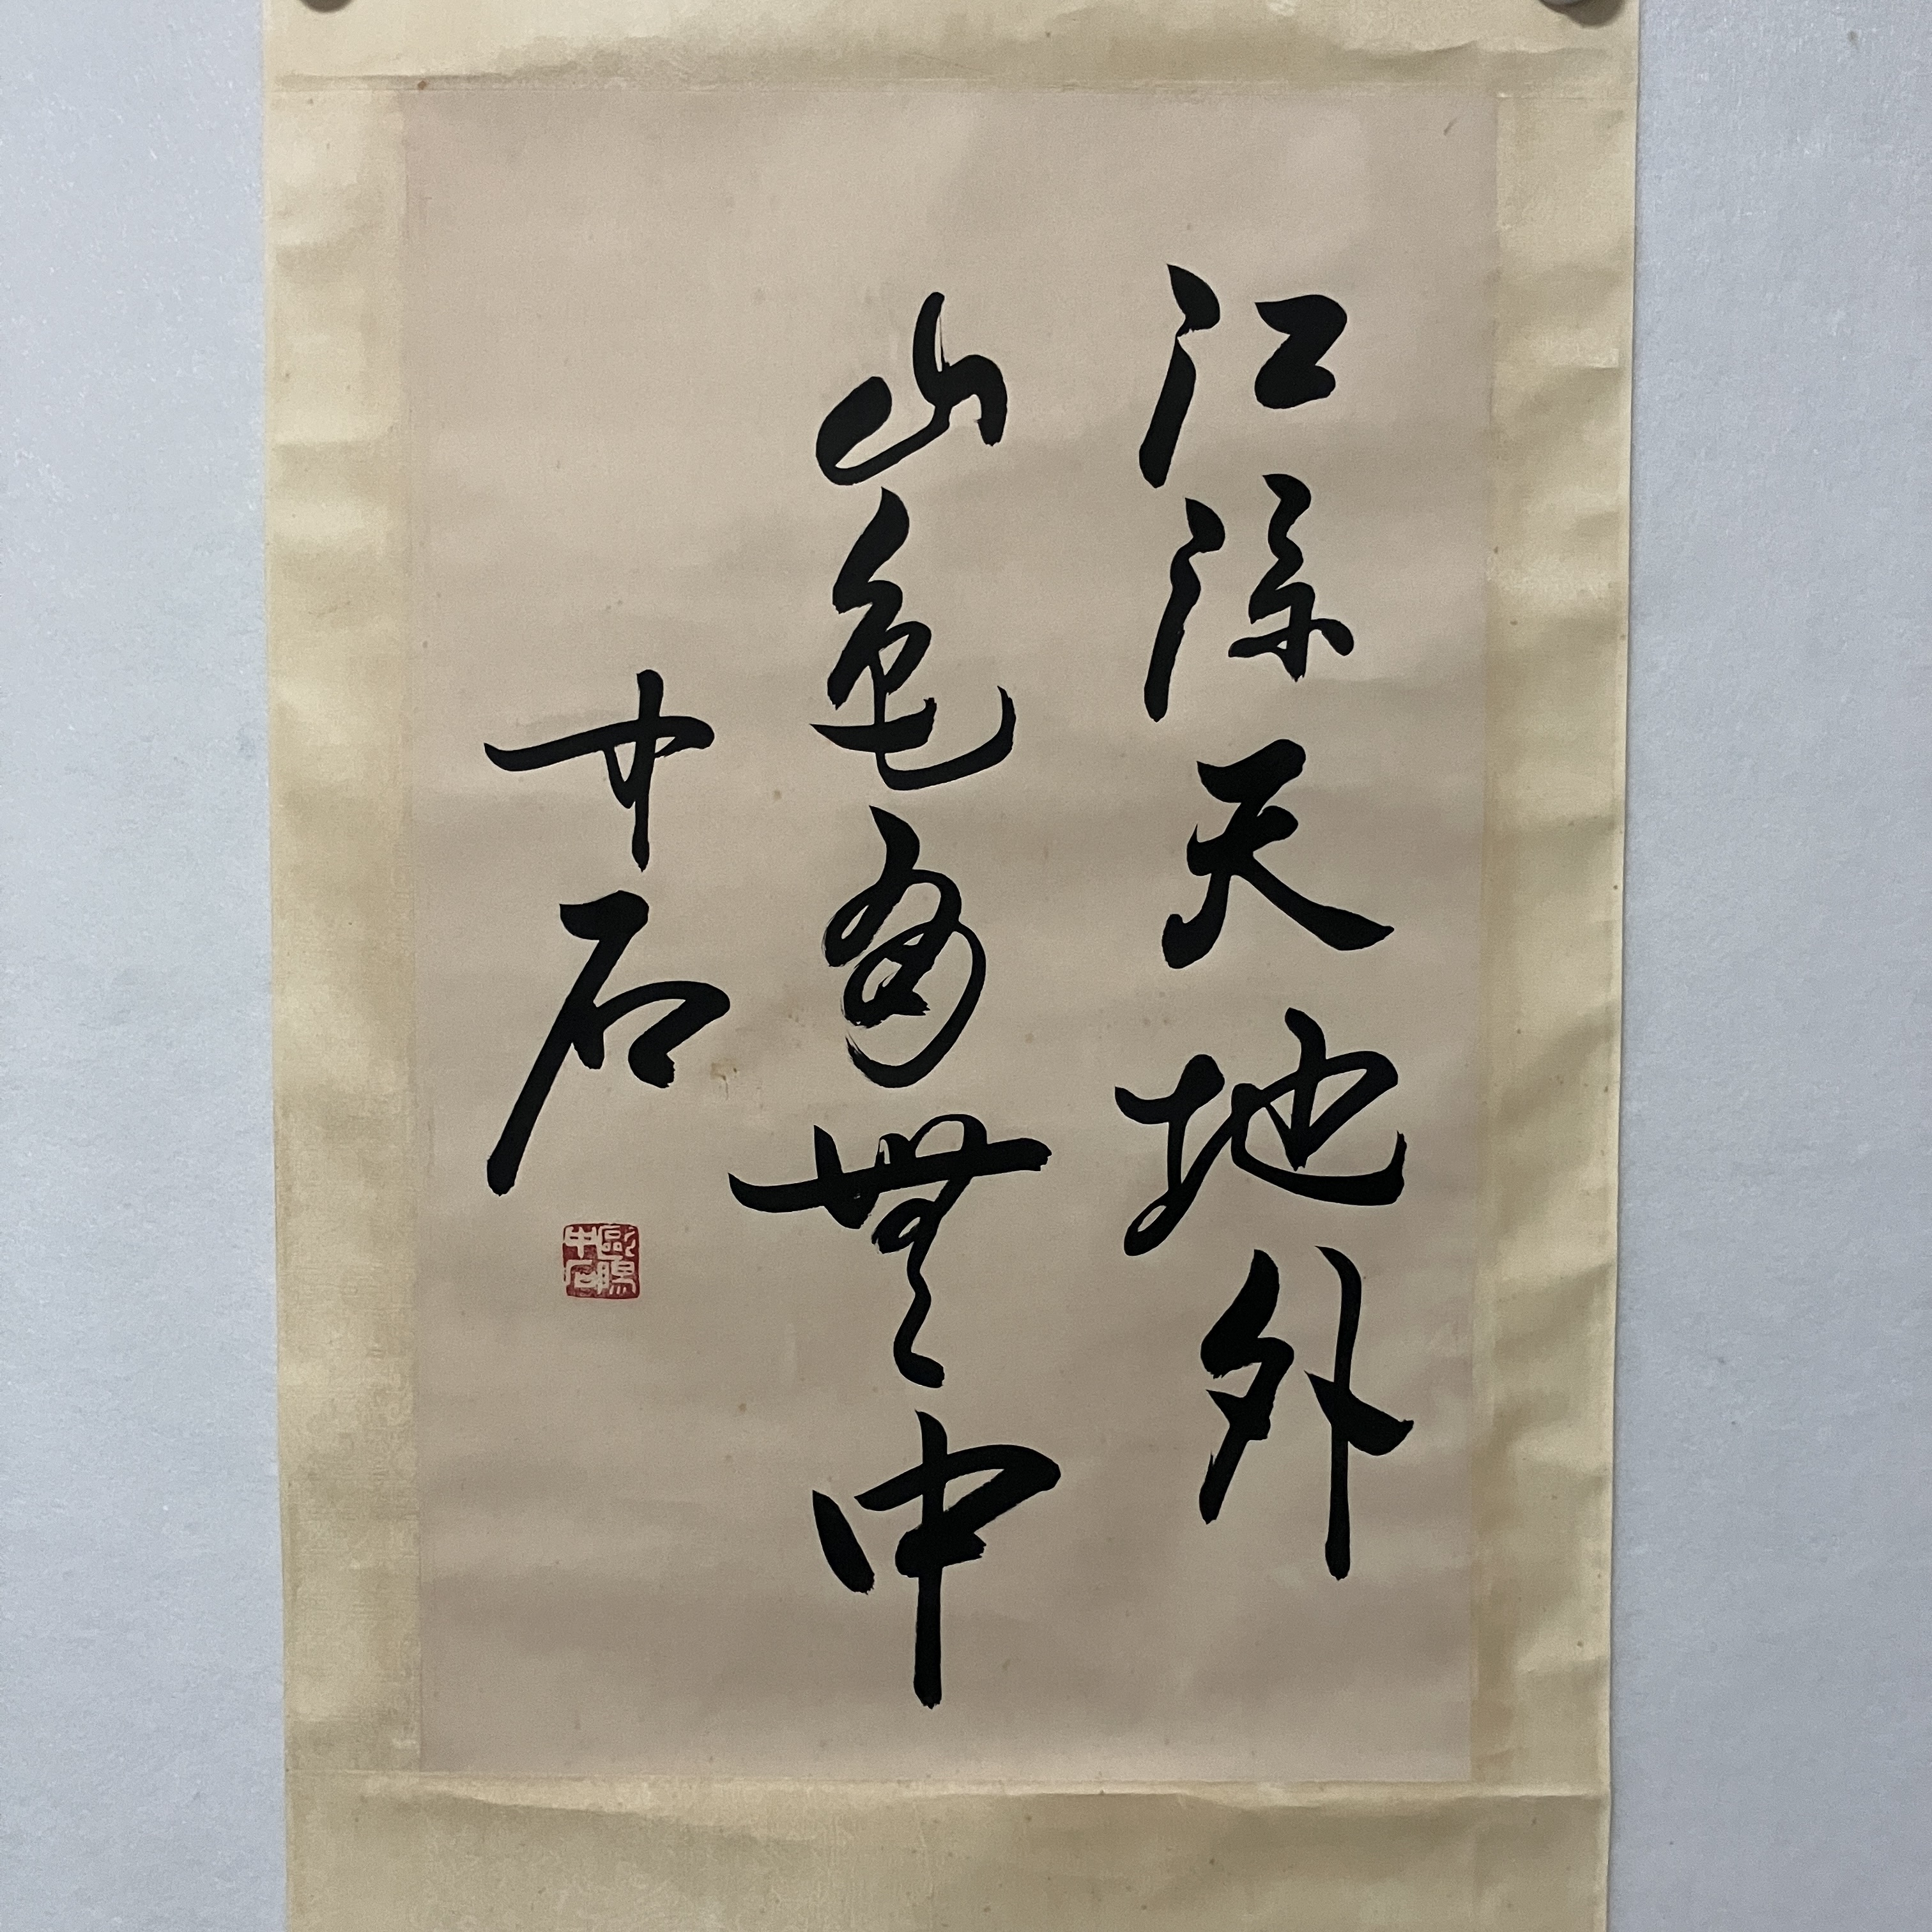 江流天地外
山色有無中
中石
歐陽中石